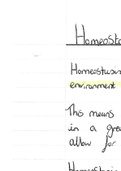 Homeosta
Homeostasis
environment
This means
in a gre
allow for
Homeostasis